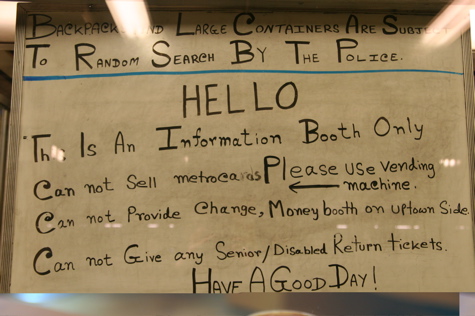 Backpacks and Large Containers Are Subject
To Random Search By The Police.
HELLO
This Is An Information Booth Only
Can not Sell metrocards Please use vending
machine.
Can not Provide Change, Money booth on uptown Side
Can not Give any Senior/Disabled Return tickets.
HAVE A GOOD DAY!